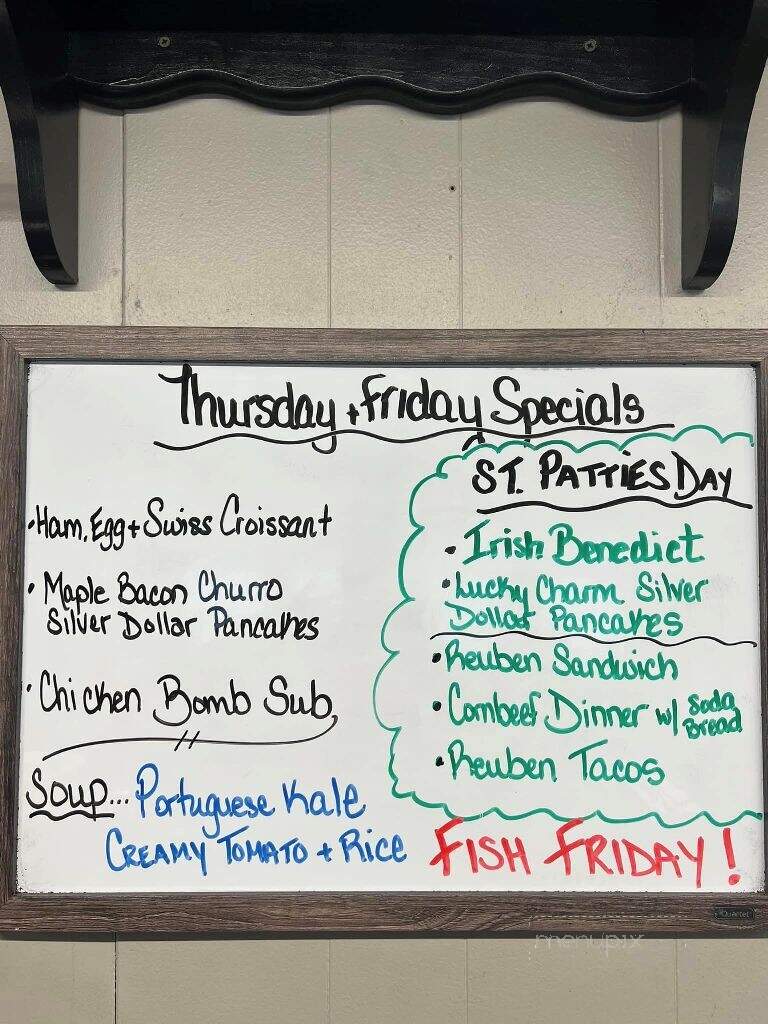 Thursday + Friday Specials
• Ham, Egg + Swiss Croissant
• Maple Bacon Churro
Silver Dollar Pancakes
• Chicken Bomb Sub
Soup... Portuguese Kale
Creamy Tomato + Rice
St. Patties Day
• Irish Benedict
• Lucky Charm Silver
Dollar Pancakes
• Reuben Sandwich
• Cornbeef Dinner w/ Soda
Bread
• Reuben Tacos
Fish Friday!
Quartet
menupix